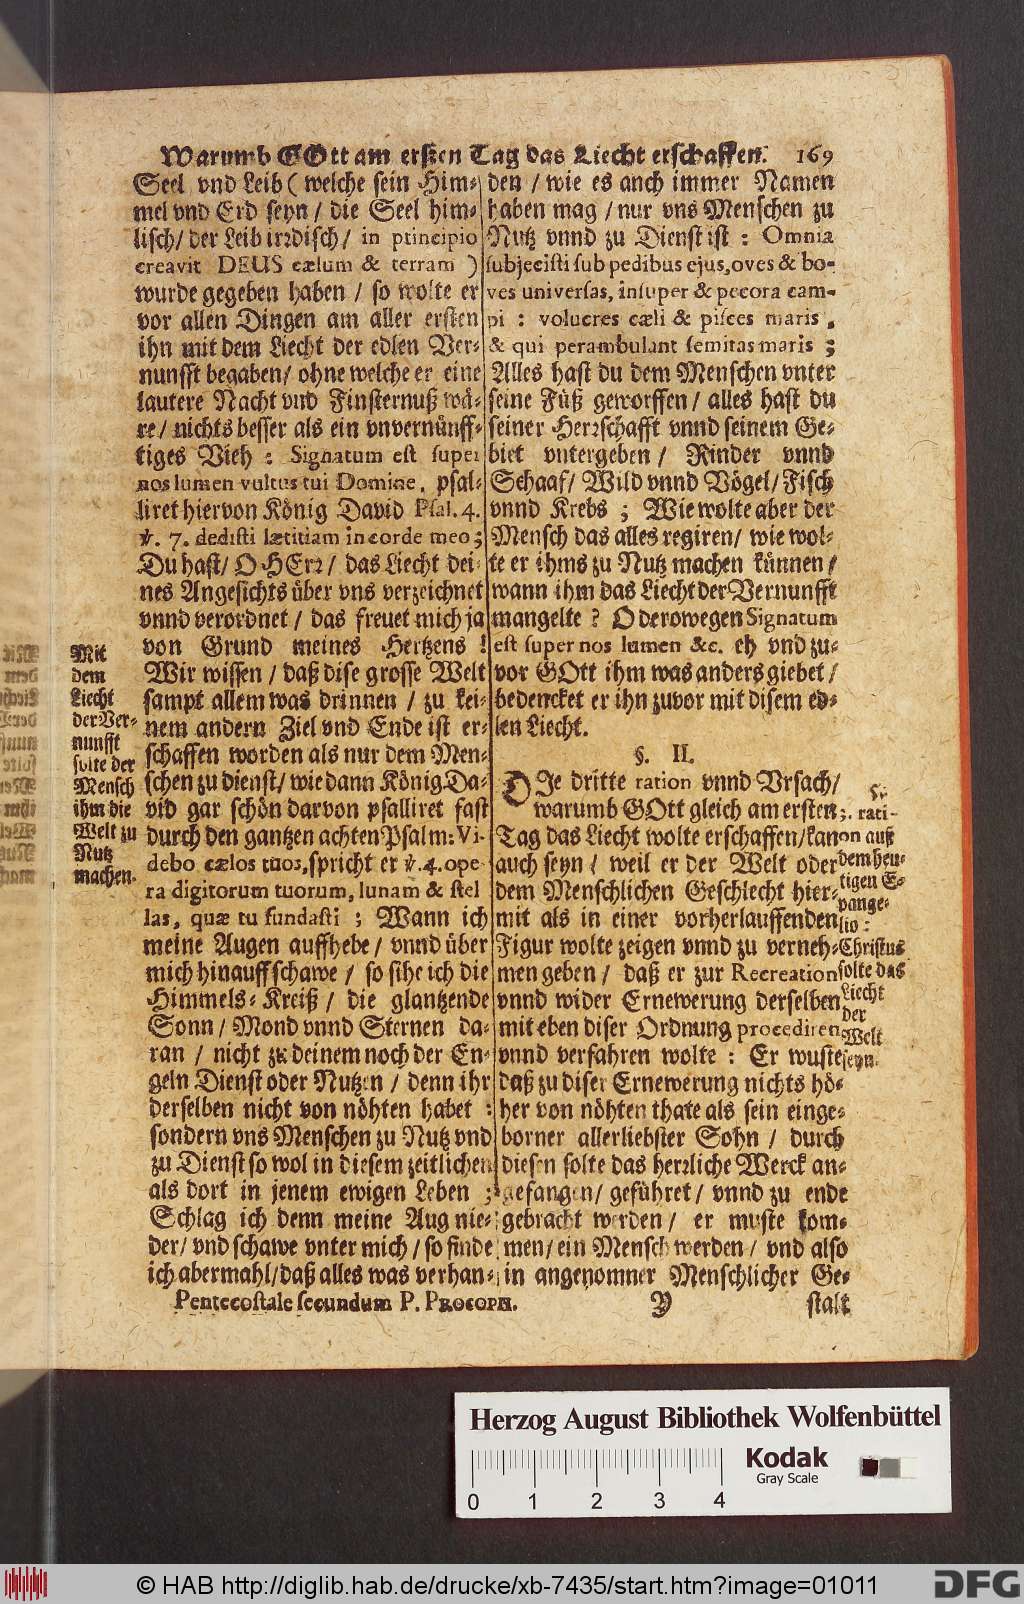 Warumb GOtt am ersten Tag das Liecht erschaffen. 169
Seel vnd Leib (welche sein Him-
mel vnd Erd seyn / die Seel him-
lisch / der Leib irrdisch / in principio
creavit DEUS cælum & terram )
wurde gegeben haben / so wolte er
vor allen Dingen am aller ersten
ihn mit dem Liecht der edlen Ver-
nunfft begaben / ohne welche er eine
lautere Nacht vnd Finsternuß wä-
re / nichts besser als ein vnvernünff-
tiges Vieh : Signatum est super
nos lumen vultus tui Domine, psal-
liret hiervon König David Psal. 4.
℣. 7. dedisti lætitiam in corde meo ;
Du hast / O HErr / das Liecht dei-
nes Angesichts über vns verzeichnet
vnnd verordnet / das freuet mich ja
von Grund meines Hertzens !
Wir wissen / daß dise grosse Welt
sampt allem was drinnen / zu kei-
nem andern Ziel vnd Ende ist er-
schaffen worden als nur dem Men-
schen zu dienst / wie dann König Da-
vid gar schön darvon psalliret fast
durch den gantzen achten Psalm: Vi-
debo cælos tuos, spricht er ℣. 4. ope
ra digitorum tuorum, lunam & stel
las, quæ tu fundasti ; Wann ich
meine Augen auffhebe / vnnd über
mich hinauff schawe / so sihe ich die
Himmels-Kreiß / die glantzende
Sonn / Mond vnnd Sternen da-
ran / nicht zu deinem noch der En-
geln Dienst oder Nutzen / denn ihr
derselben nicht von nöhten habet :
sondern vns Menschen zu Nutz vnd
zu Dienst so wol in diesem zeitlichen
als dort in jenem ewigen Leben ;
Schlag ich denn meine Aug nie-
der / vnd schawe vnter mich / so finde
ich abermahl / daß alles was verhan-
Mit
dem
Liecht
der Ver-
nunfft
solte der
Mensch
ihm die
Welt zu
Nutz
machen.
den / wie es anch immer Namen
haben mag / nur vns Menschen zu
Nutz vnnd zu Dienst ist : Omnia
subjecisti sub pedibus ejus, oves & bo-
ves universas, insuper & pecora cam-
pi : volucres cæli & pisces maris,
& qui perambulant semitas maris ;
Alles hast du dem Menschen vnter
seine Füß geworffen / alles hast du
seiner Herrschafft vnnd seinem Ge-
biet vntergeben / Rinder vnnd
Schaaf / Wild vnnd Vögel / Fisch
vnnd Krebs ; Wie wolte aber der
Mensch das alles regiren / wie wol-
te er ihms zu Nutz machen künnen /
wann ihm das Liecht der Vernunfft
mangelte ? O derowegen Signatum
est super nos lumen &c. eh vnd zu-
vor GOtt ihm was anders giebet /
bedencket er ihn zuvor mit disem ed-
len Liecht.
§. II.
DIe dritte ration vnnd Vrsach /
warumb GOtt gleich am ersten
Tag das Liecht wolte erschaffen / kan
auch seyn / weil er der Welt oder
dem Menschlichen Geschlecht hier-
mit als in einer vorherlauffenden
Figur wolte zeigen vnnd zu verneh-
men geben / daß er zur Recreation
vnnd wider Ernewerung derselben
mit eben diser Ordnung procediren
vnnd verfahren wolte : Er wuste
daß zu diser Ernewerung nichts hö-
her von nöhten thate als sein einge-
borner allerliebster Sohn / durch
diesen solte das herrliche Werck an-
gefangen / geführet / vnnd zu ende
gebracht werden / er muste kom-
men / ein Mensch werden / vnd also
in angenomner Menschlicher Ge-
3. rati-
on auß
dem heu-
tigen E-
vange-
lio :
Christus
solte das
Liecht
der
Welt
seyn.
Pentecostale secundum P. PROCOPII. Y stalt
Herzog August Bibliothek Wolfenbüttel
Kodak
Gray Scale
0 1 2 3 4
© HAB http://diglib.hab.de/drucke/xb-7435/start.htm?image=01011
DFG